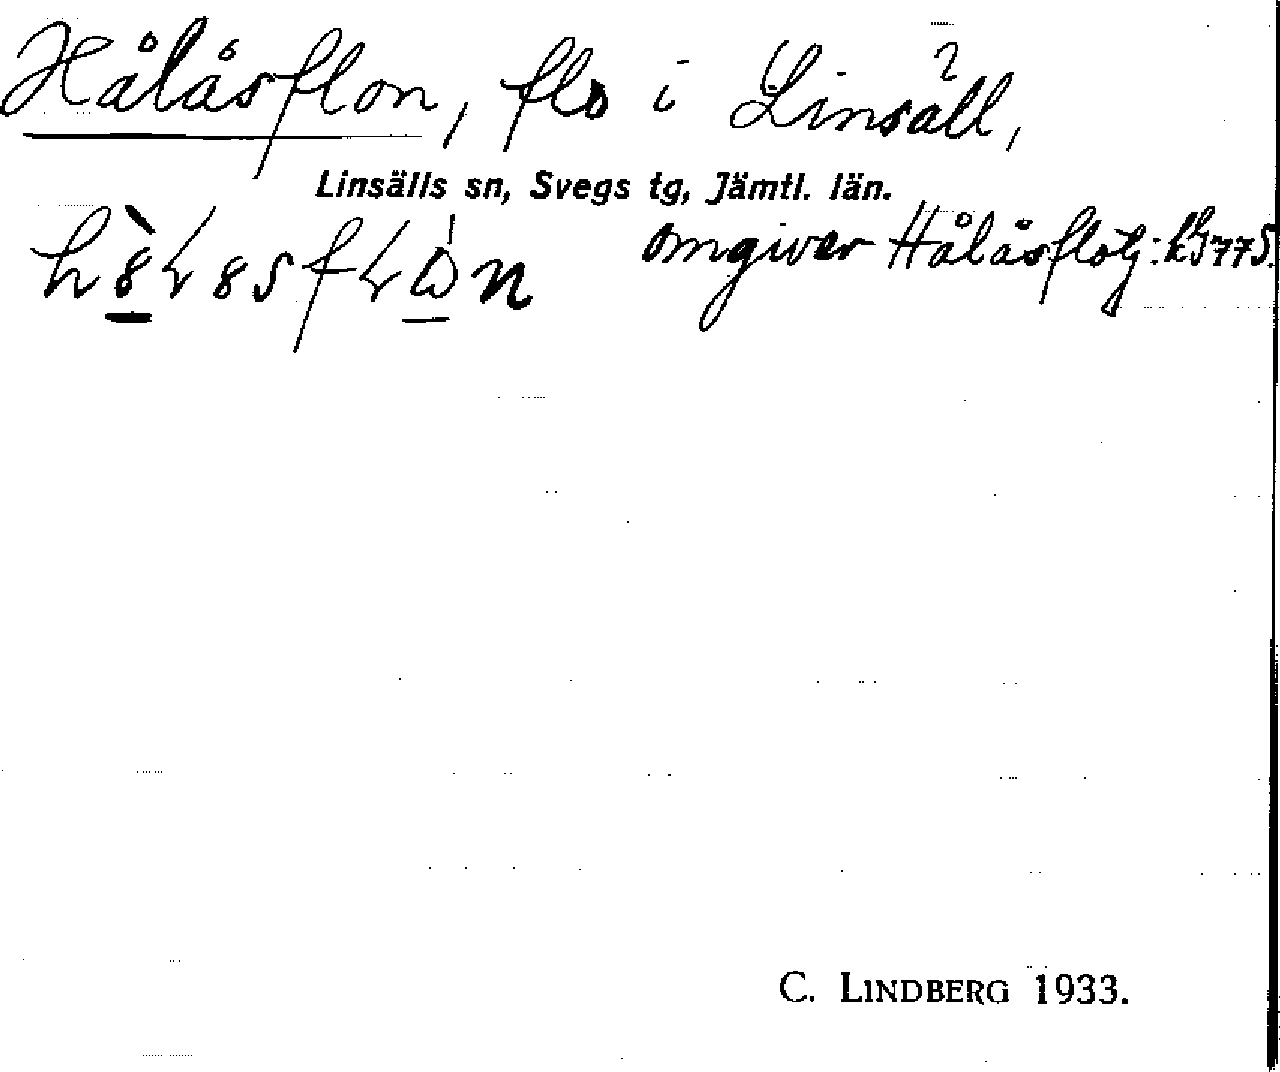 Hålåsflon, flo i Linsäll,
Linsälls sn, Svegs tg, Jämtl. län.
omgiver Hålåsflotj:
C. LINDBERG 1933.